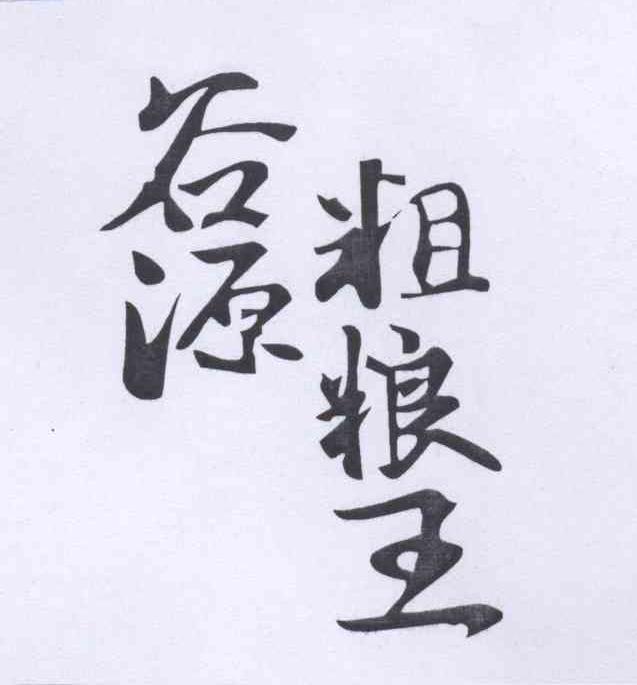 谷源
粗粮王